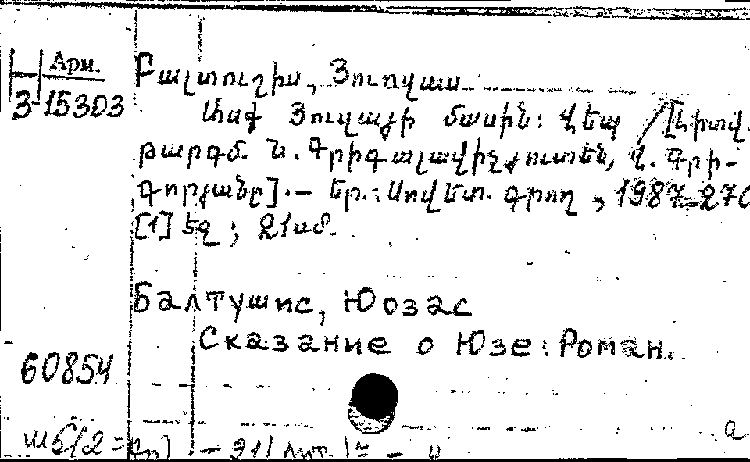 Арм.
З-15303
Բալտուշիս, Յուոզաս
Ասք Յուզայի մասին: Վեպ /[Լիտվ.
թարգմ. Ն. Գրիգալավիչյուտեն, Վ. Գրի-
գորյանը].— Եր.: Սովետ. գրող, 1987.-270
[1] եզ; 21սմ.
Балтушис, Юозас
Сказание о Юзе: Роман.
60854
а